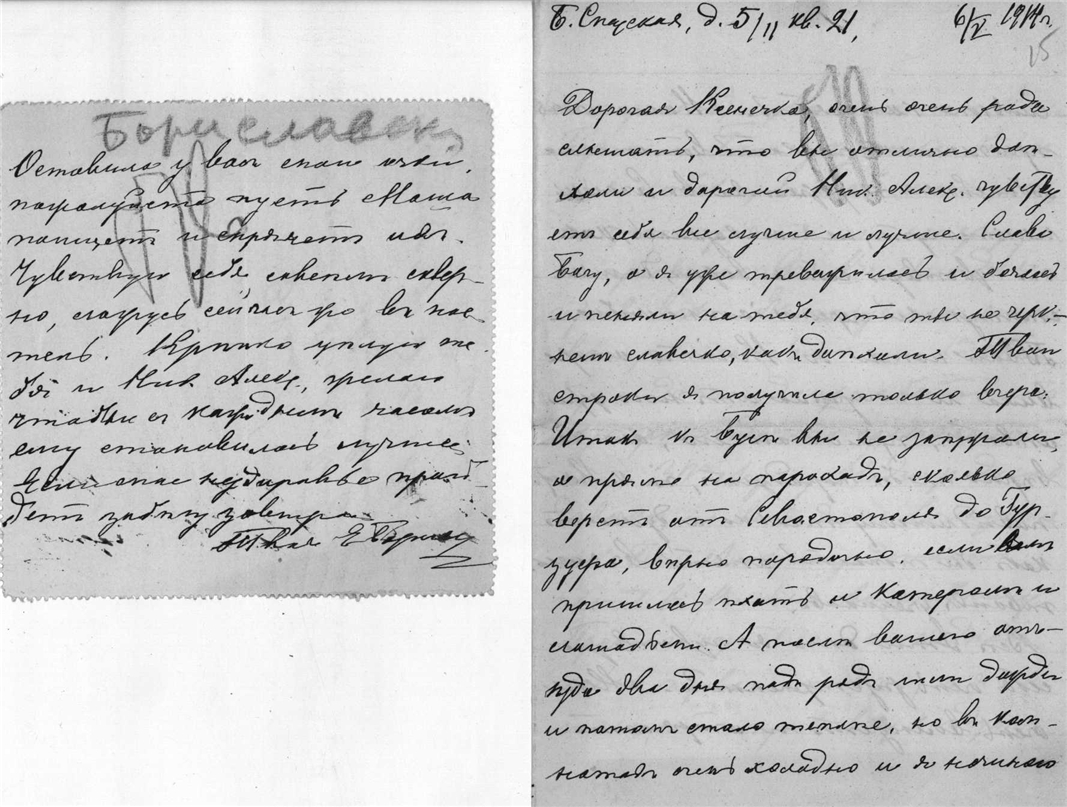 Бориславск
Оставила у вас свои очки,
пожалуйста пусть Маша
поищет и спрячет их.
Чувствую себя совсем сквер-
но, ложусь сейчас же в пос-
тель. Крепко целую те-
бя и Ник Алекс, желаю
чтобы с каждым часом
ему становилось лучше.
Если мое нездоровье прой
дет забегу завтра
Твоя Е
Б. Спасская, д. 5/11 кв. 21,
6/V 1914 г.
15
Дорогая Ксенечка, очень очень рада
слышать, что вы отлично доѣ-
хали и дорогой Ник. Алекс. чувству
етъ себя все лучше и лучше. Слава
Богу, а я уже тревожилась и
и пеняла на тебя, что ты не черк-
нешь словечко, какъ доѣхали. Твои
строки я получила только вчера.
Итакъ къ вы не заѣзжали,
а прямо на пароходъ, сколько
верстъ отъ Севастополя до Гур-
зуфа, вѣрно порядочно, если вам
пришлось ѣхать и катеромъ и
лошадьми. А послѣ вашего отъ-
ѣзда два дня подъ рядъ шли дожди
и потомъ стало теплѣе, но въ ком-
натахъ очень холодно и я начинаю